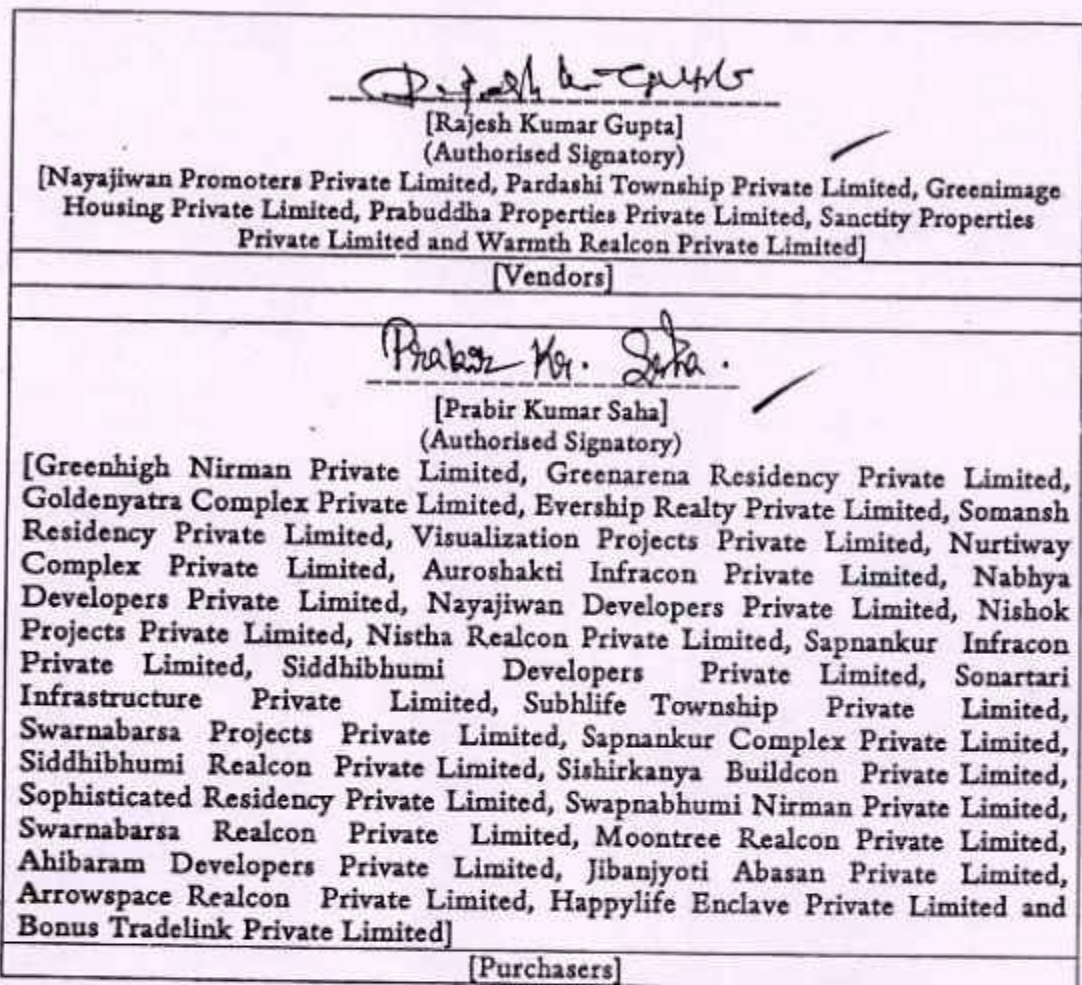 Rajesh Kr Gupta
[Rajesh Kumar Gupta]
(Authorised Signatory)
[Nayajiwan Promoters Private Limited, Pardashi Township Private Limited, Greenimage
Housing Private Limited, Prabuddha Properties Private Limited, Sanctity Properties
Private Limited and Warmth Realcon Private Limited]
[Vendors]
Prabir Kr. Saha.
[Prabir Kumar Saha]
(Authorised Signatory)
[Greenhigh Nirman Private Limited, Greenarena Residency Private Limited,
Goldenyatra Complex Private Limited, Evership Realty Private Limited, Somansh
Residency Private Limited, Visualization Projects Private Limited, Nurtiway
Complex Private Limited, Auroshakti Infracon Private Limited, Nabhya
Developers Private Limited, Nayajiwan Developers Private Limited, Nishok
Projects Private Limited, Nistha Realcon Private Limited, Sapnankur Infracon
Private Limited, Siddhibhumi Developers Private Limited, Sonartari
Infrastructure Private Limited, Subhlife Township Private Limited,
Swarnabarsa Projects Private Limited, Sapnankur Complex Private Limited,
Siddhibhumi Realcon Private Limited, Sishirkanya Buildcon Private Limited,
Sophisticated Residency Private Limited, Swapnabhumi Nirman Private Limited,
Swarnabarsa Realcon Private Limited, Moontree Realcon Private Limited,
Ahibaram Developers Private Limited, Jibanjyoti Abasan Private Limited,
Arrowspace Realcon Private Limited, Happylife Enclave Private Limited and
Bonus Tradelink Private Limited]
[Purchasers]